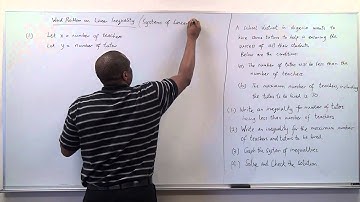 Word Problem on Linear Inequality (Systems of Linear
(1) Let x = number of teachers
Let y = number of tutors
A school district in
wants to
have some tutors to help in ensuring the
success of all their students
Below are the conditions
(a) The number of tutors will be less than the
number of teachers
(b) The maximum number of teachers, including
the tutors to be hired is 20
(1) Write an inequality for number of tutors
being less than number of teachers
(2) Write an inequality for the maximum number
of teachers and tutors to be hired
(3) Graph the System of inequalities
(4) Solve and Check the solution